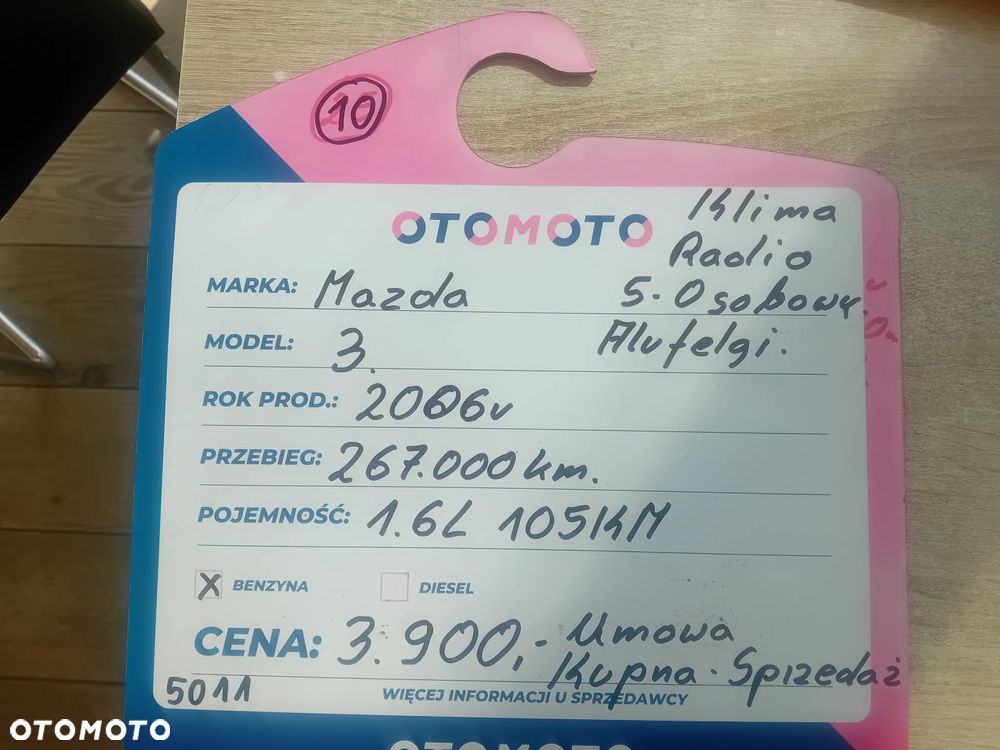 10
OTOMOTO
Klima
Radio
MARKA: Mazda
5-Osobowy.
MODEL: 3.
Alufelgi.
ROK PROD.: 2006r
PRZEBIEG: 267.000 km.
POJEMNOŚĆ: 1.6L 105KM
X BENZYNA DIESEL
CENA: 3.900,- Umowa
Kupna-Sprzedaż
5011
WIĘCEJ INFORMACJI U SPRZEDAWCY
OTOMOTO
OTOMOTO